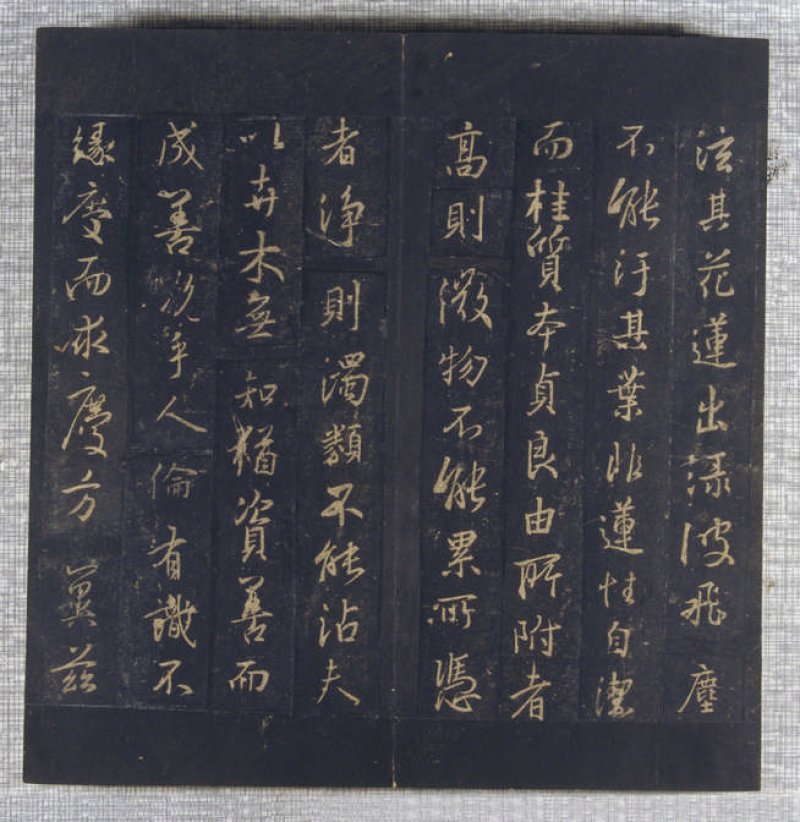 泫其花蓮出淥波飛塵
不能汙其葉非蓮性自潔
而桂質本貞良由所附者
高則微物不能累所憑
者淨則濁類不能沾夫
以卉木無知猶資善而
成善況乎人倫有識不
緣慶而求慶方冀茲